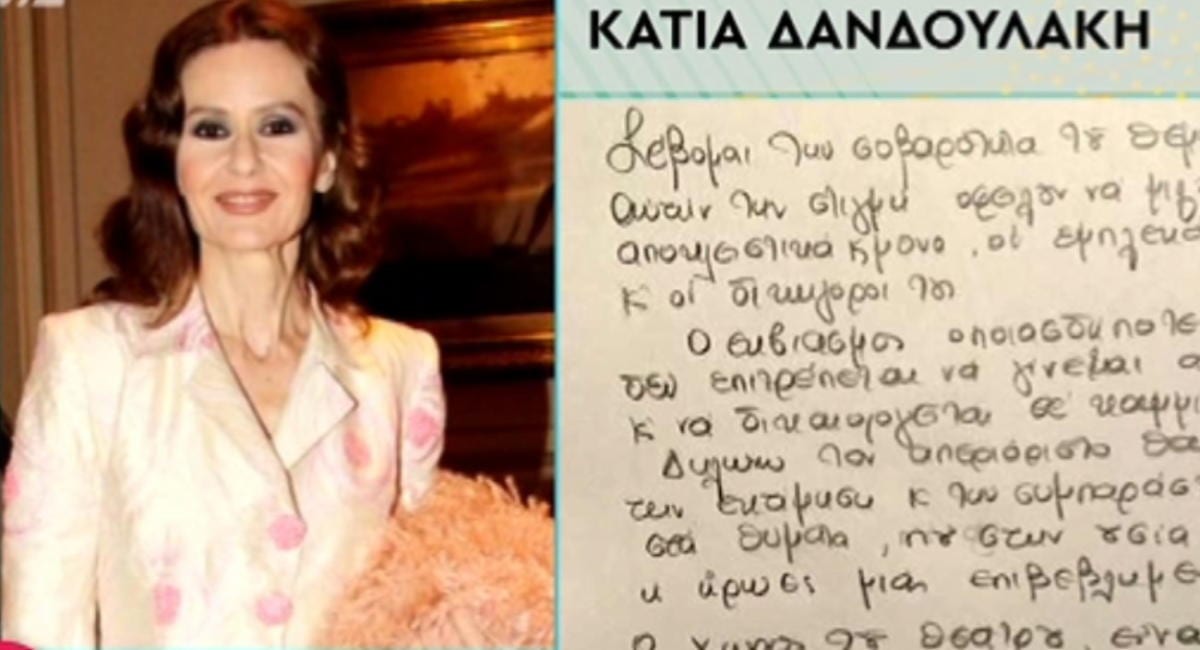 ΚΑΤΙΑ ΔΑΝΔΟΥΛΑΚΗ
Σέβομαι την σοβαρότητα του θεμ
Αυτήν την στιγμή οφείλουν να μιλ
αποκλειστικά κ μόνο, οι εμπλεκό
κ οι δικηγόροι του
Ο εκβιασμός οποιασδήποτε
δεν επιτρέπεται να γίνεται α
κ να δικαιολογείται σε καμμι
Δηλώνω τον απεριόριστο θα
την εκτίμηση κ την συμπαράσ
στά θύματα, που στην ουσία
κ
μιαν επιβεβλημέ
Ο χώρος του θεάτρου, είνα